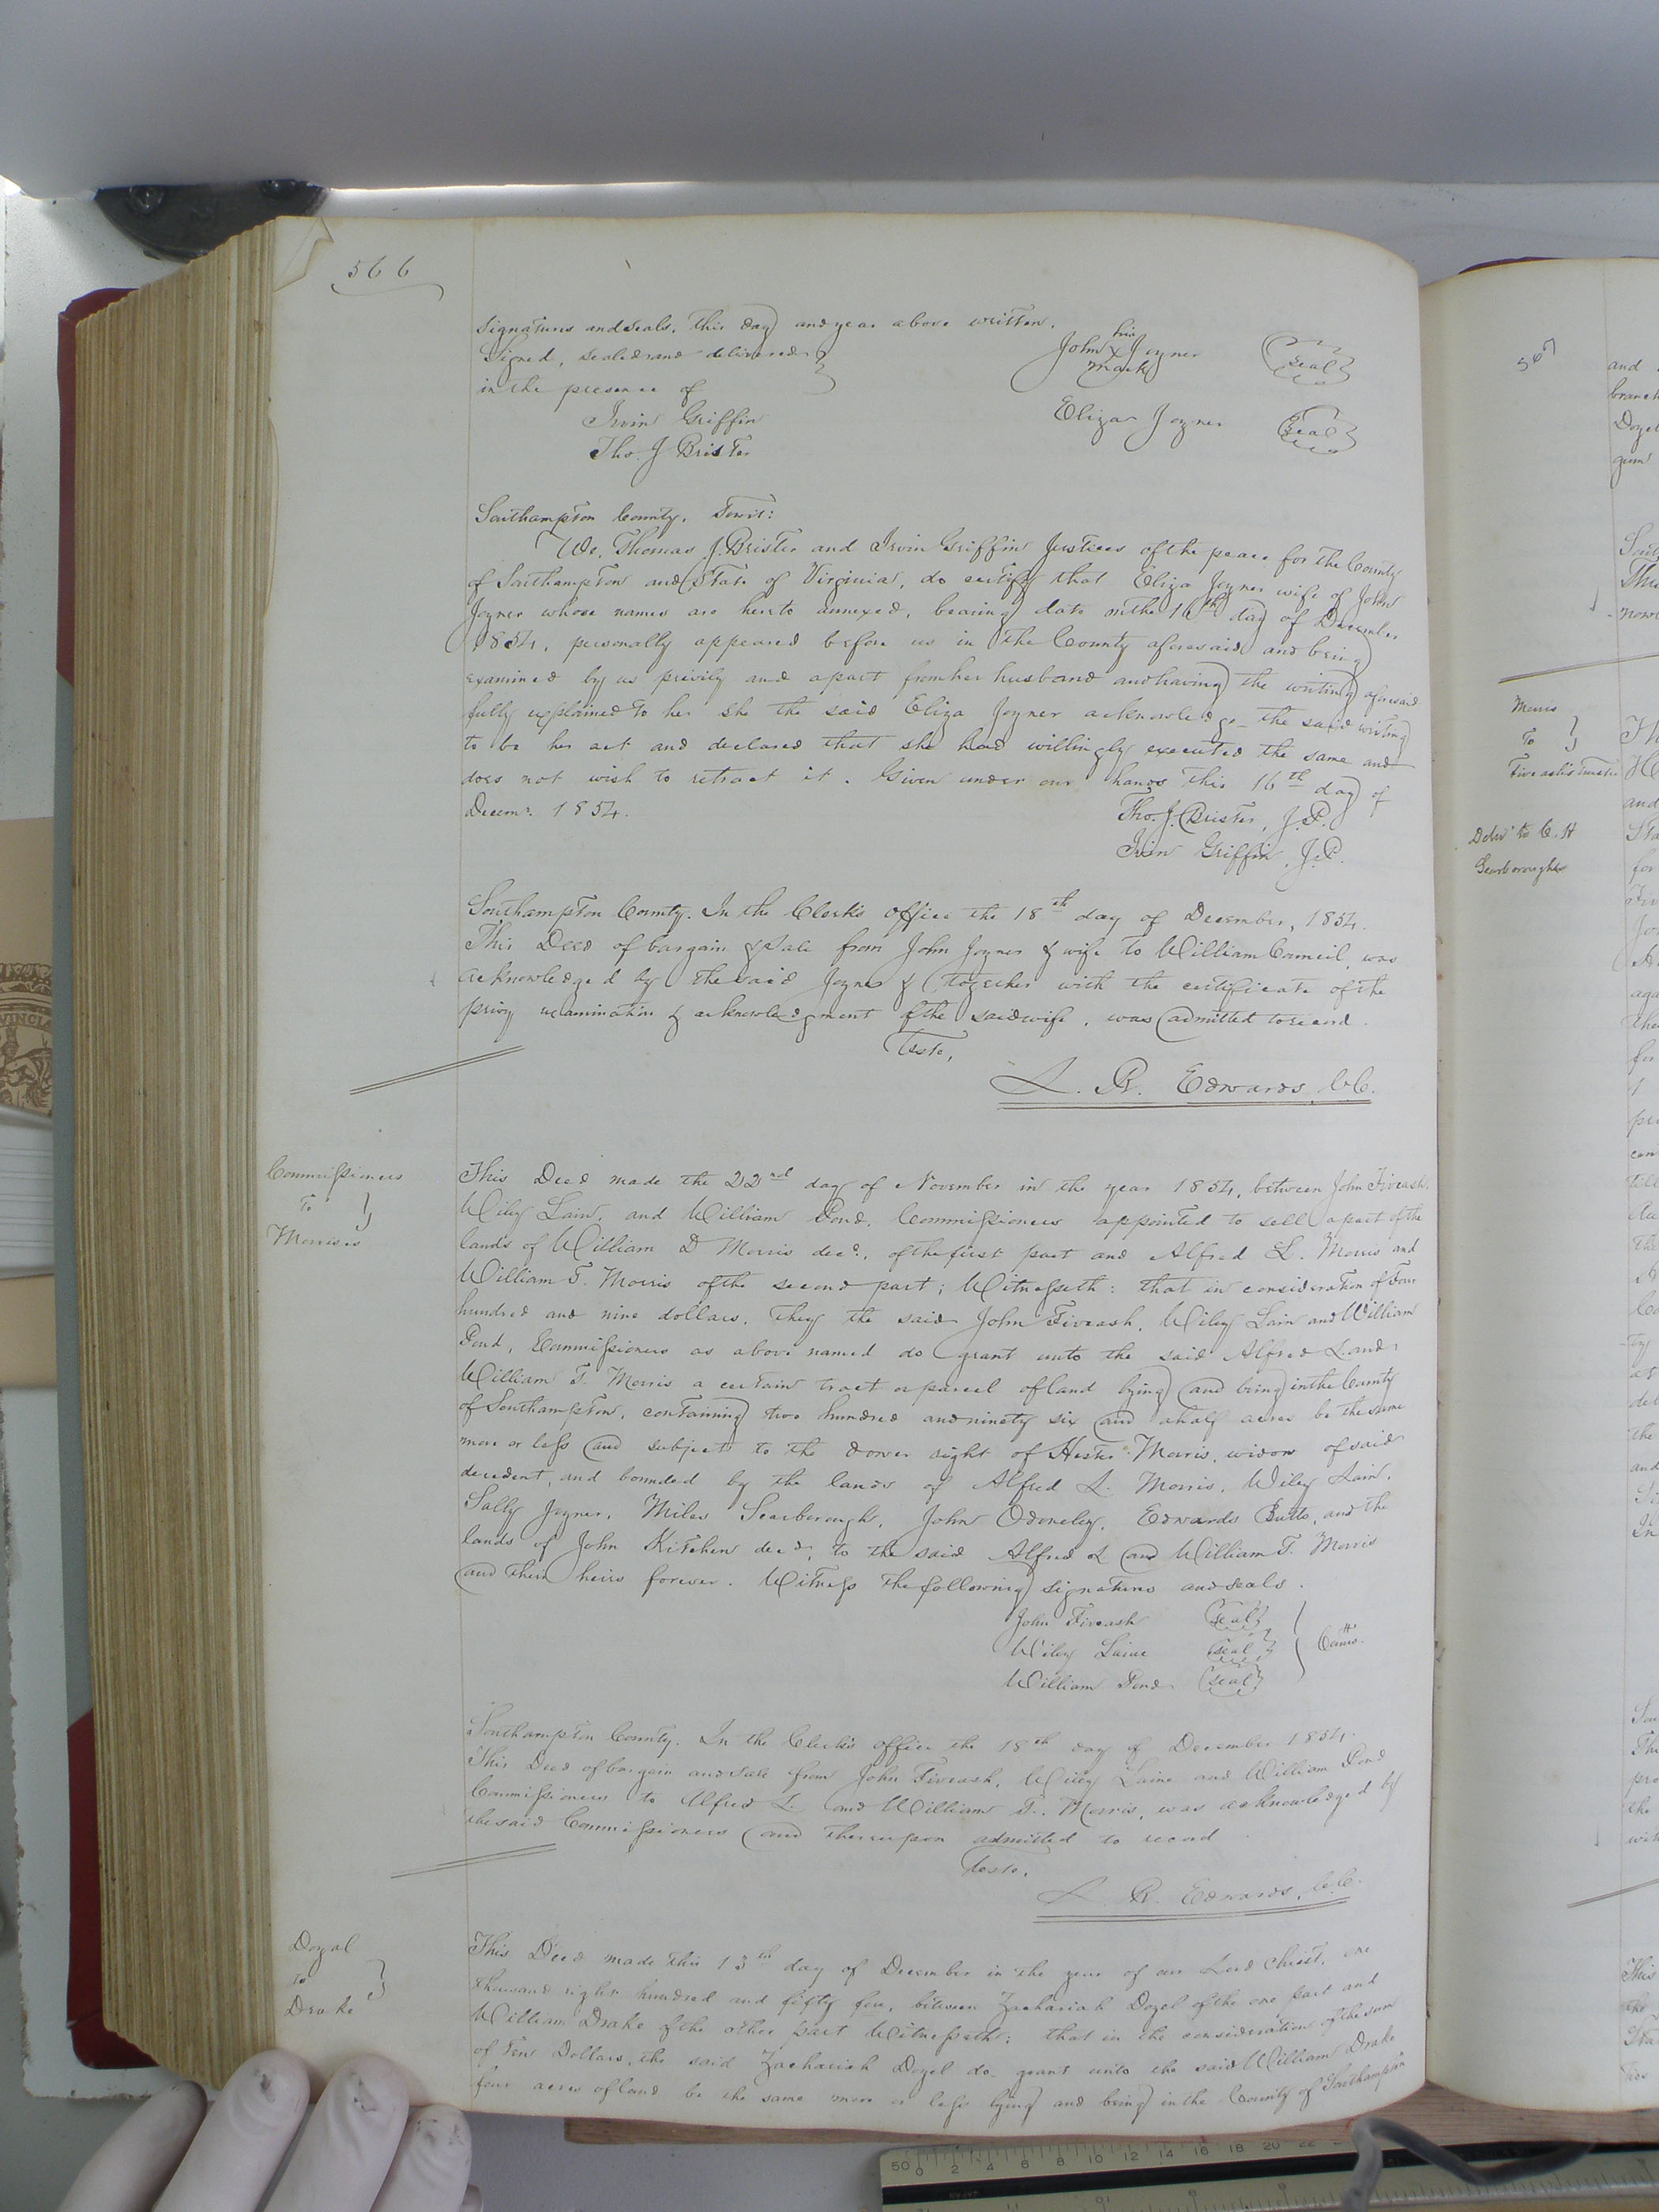 566
signatures and seals, this day and year above written.
Signed, sealed and delivered
in the presence of
Irvin Griffin
Tho. J Brister
his
John X Joyner
mark
Seal
Eliza Joyner
Seal
Southampton County, Towit:
We, Thomas J. Brister and Irvin Griffin Justices of the peace for the County
of Southampton and State of Virginia, do certify that Eliza Joyner wife of John
Joyner whose names are hereto annexed, bearing date on the 16th day of December
1854, personally appeared before us in the County aforesaid and being
examined by us privily and apart from her husband and having the writing aforesaid
fully explained to her she the said Eliza Joyner acknowledge the said writing
to be her act and declared that she had willingly executed the same and
does not wish to retract it. Given under our hands this 16th day of
Decemr. 1854.
Tho. J. Brister, J.P.
Irvin Griffin, J.P.
Southampton County. In the Clerk's office the 18th day of December, 1854.
This Deed of bargain & sale from John Joyner & wife to William Council, was
acknowledged by the said Joyner & together with the certificate of the
privy examination & acknowledgment of the said wife, was admitted to record.
Teste,
L. R. Edwards, C.C.
Commissioners
To
Morrises
This Deed made the 22nd day of November in the year 1854, between John Fiveash,
Wiley Lain, and William Pond, Commissioners appointed to sell a part of the
lands of William D Morris decd., of the first part and Alfred L. Morris and
William T. Morris of the second part; Witnesseth: that in consideration of Four
hundred and nine dollars, they the said John Fiveash, Wiley Lain and William
Pond, Commissioners as above named do grant unto the said Alfred L and
William T. Morris a certain tract or parcel of land lying and being in the County
of Southampton, containing two hundred and ninety six and a half acres be the same
more or less and subject to the dower right of Hester Morris, widow of said
decedent, and bounded by the lands of Alfred L. Morris, Wiley Lain,
Sally Joyner, Miles Scarborough, John Edwards Butts, and the
lands of John Kitchen decd, to the said Alfred L and William T. Morris
and their heirs forever. Witness the following signatures and seals.
John Fiveash Seal
Wiley Laine Seal
William Pond Seal
Comrs.
Southampton County. In the Clerk's office the 18th day of December 1854.
This Deed of bargain and sale from John Fiveash, Wiley Laine and William Pond
Commissioners to Alfred L. and William T. Morris, was acknowledged by
the said Commissioners and thereupon admitted to record
Teste,
L. R. Edwards, C.C.
Doyal
To
Drake
This Deed made this 13th day of December in the year of our Lord Christ, one
thousand eight hundred and fifty four, between Zachariah Doyel of the one part and
William Drake of the other part Witnesseth; that in the consideration of the sum
of Ten Dollars, the said Zachariah Doyel do grant unto the said William Drake
four acres of land be the same more or less lying and being in the County of Southampton
567
and
branch
Doyel
gum
Morris
To
Fiveash's Trustee
Delivd to C. H
Scarborough
50 0 2 4 6 8 10 12 14 16 18 20 22
JAPAN